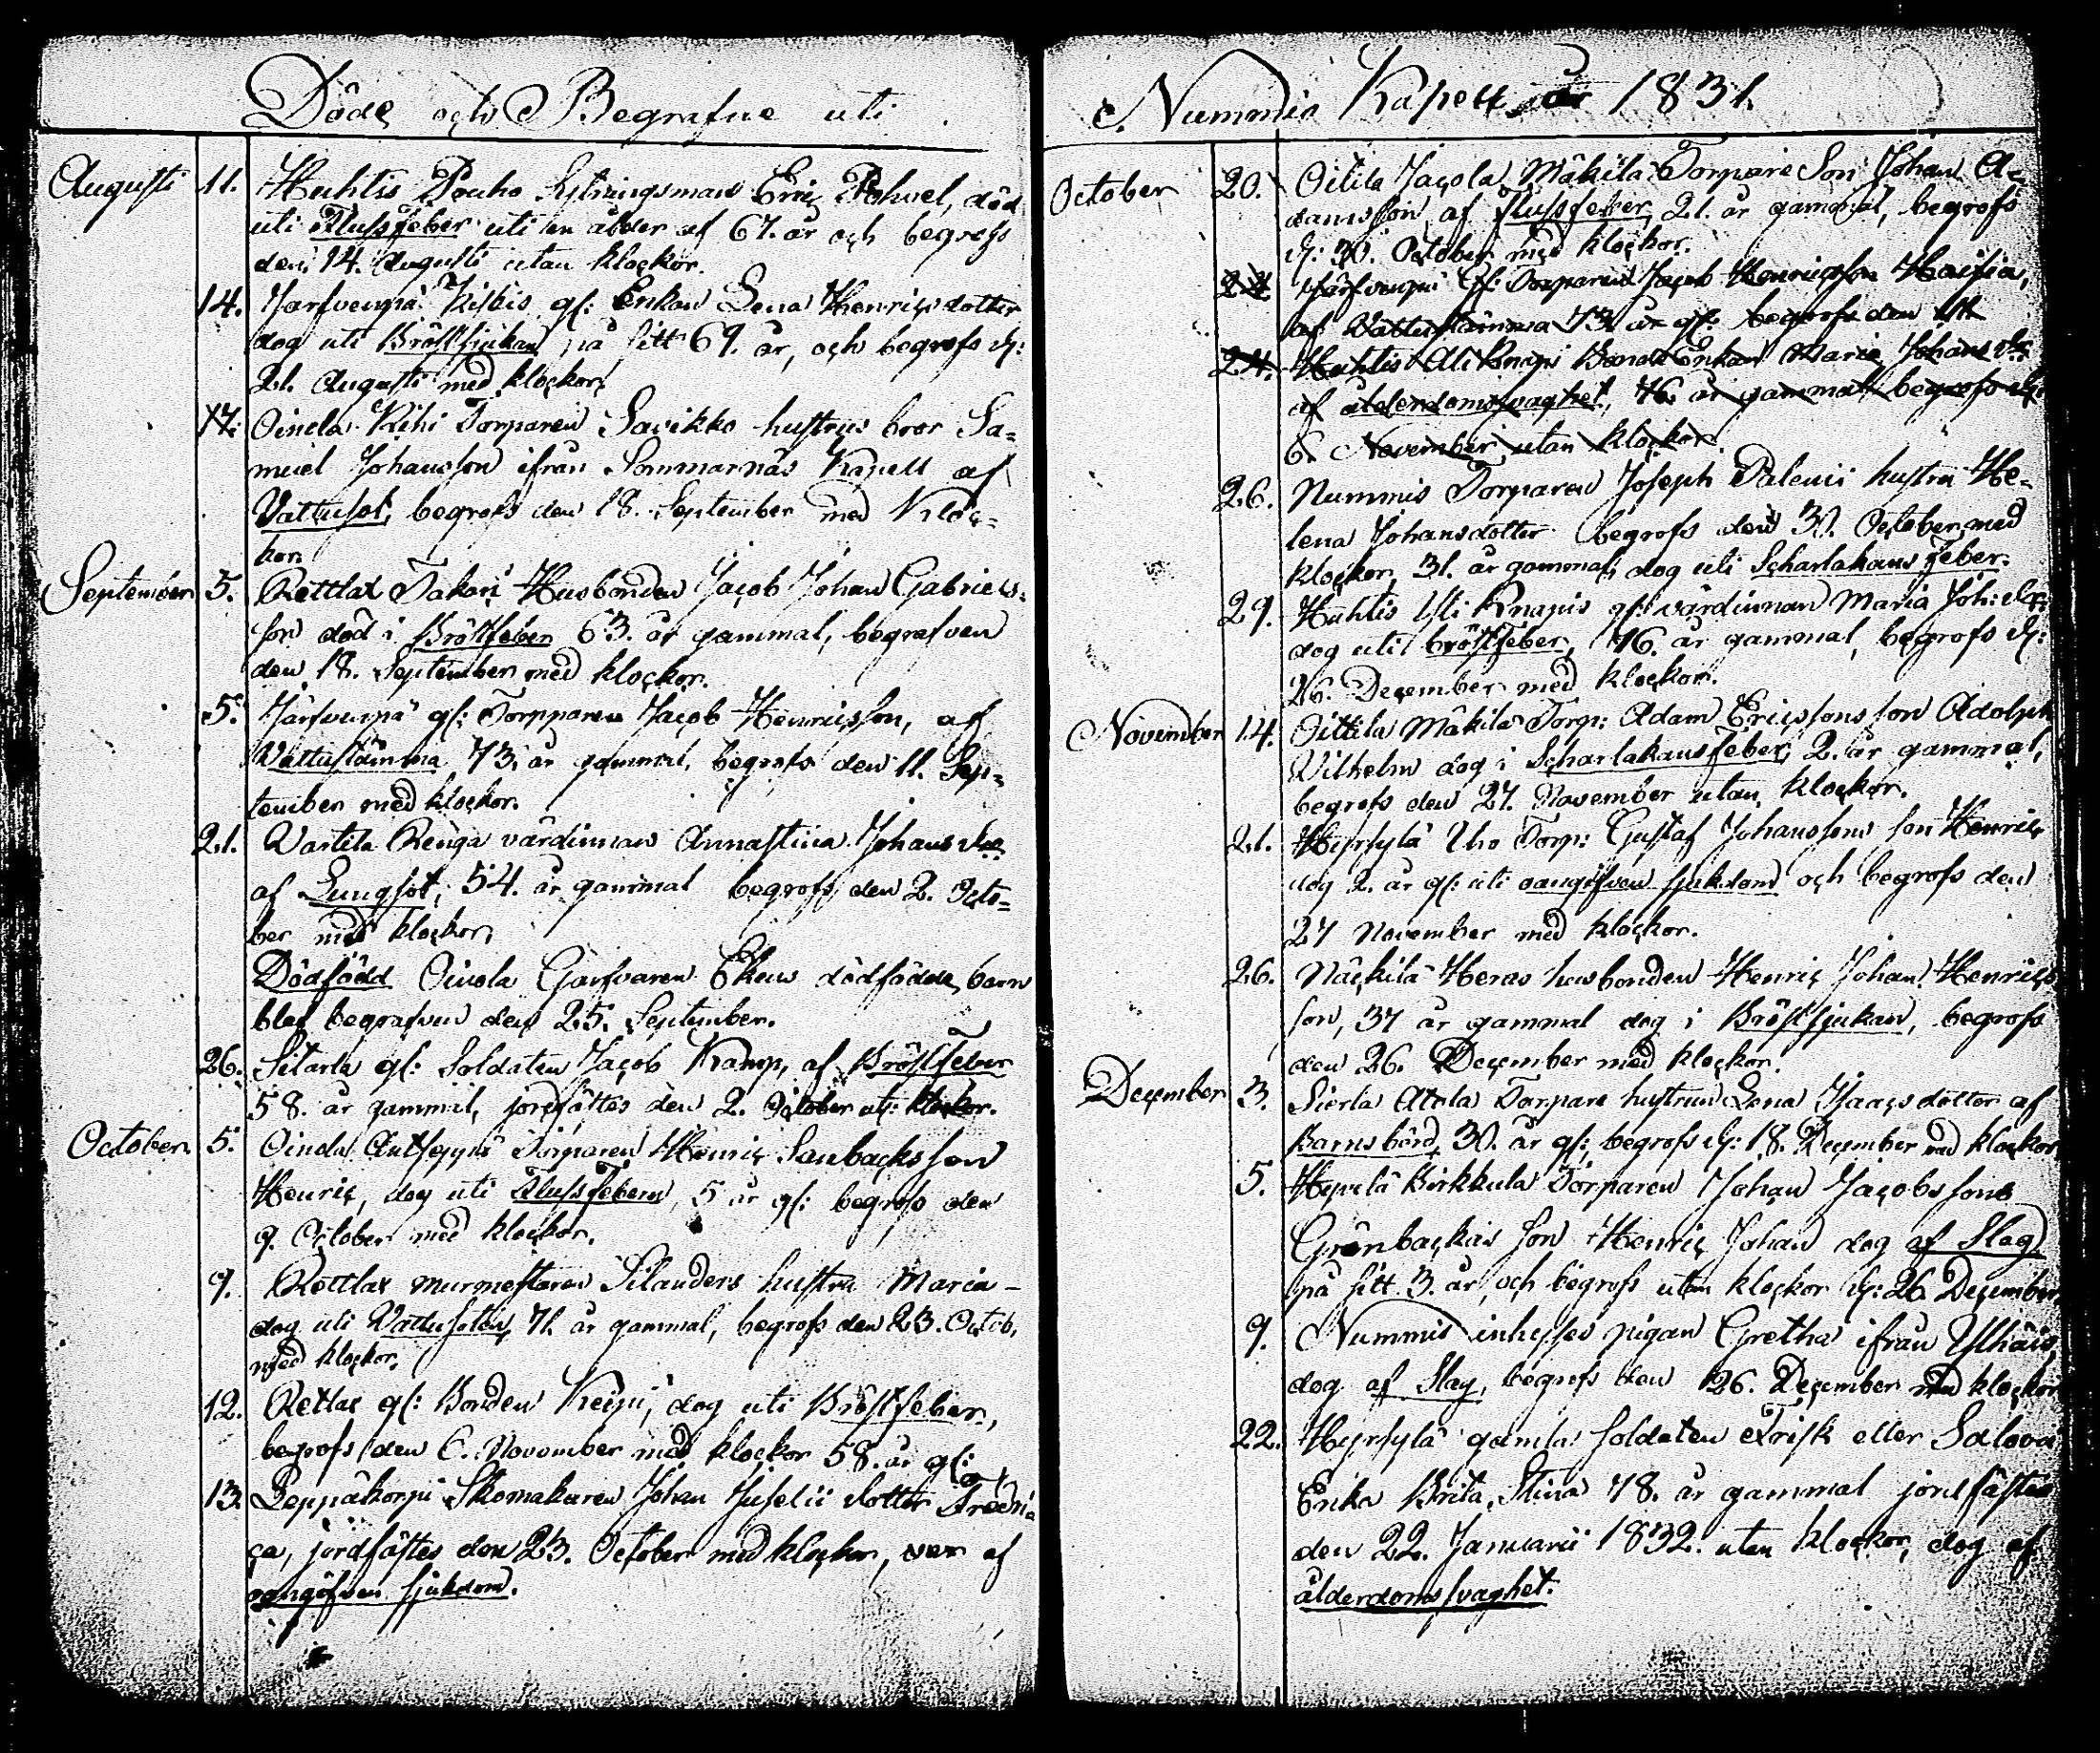 Döde och Begrafne uti
Augusti 11. Huhtis Pouho Sytningsman Eric Pohvel, död
uti Flussfeber uti en ålder af 67. år och begrofs
den 14. Augusti utan klockor.
14. Jerfvenpä Kilkis gl: Enkan Lena Henricsdotter
dog uti Bröstsjukan på sitt 69. år, och begrofs d:
21. Augusti med klockor.
17. Oinola Kihi Torparen Savikko hustrus bror Sa=
muel Johansson ifrån Sommarnäs Kapell af
Vattusot, begrofs den 18. September med Kloc=
kor.
September 5. Rettlax Takari Husbonden Jacob Johan Gabriels=
son död i Bröstfeber 63. år gammal, begrafven
den 18. September med klockor.
5. Järfvenpä gl: Torpparen Jacob Henricsson, af
Vattustämma 73. år gammal, begrofs den 11. Sep=
tember med klockor.
21. Vartila Renga värdinnan Annastina Johansdr
af Lungsot, 54. år gammal begrofs den 2. Octo=
ber med klockor.
Dödfödd Oinola Garfvaren Ekens dödfödde barn
blef begrafven den 25. September.
26. Sitarla gl: Soldaten Jacob Kamp, af Bröstfeber
58. år gammal, jordfästes den 2. October ut: klockor.
October 5. Oinola Anttseppä Torparen Henric Sanbacks son
Henric, dog uti Flussfebern, 5 år gl: begrofs den
9. October med klockor.
9. Rettlax murmestaren Silanders hustru Maria
dog uti Vattusoten, 71. år gammal, begrofs den 23. Octob.
med klockor.
12. Retlax gl: Bonden Keipi, dog uti Bröstfeber,
begrofs den 6. November med klockor 58. år gl:
13. Leppäkorpi Skomakaren Johan Juselii dotter Fredri=
ca, jordfästes den 23. October med klockor, var af
oangifven sjukdom.
Nummis Kapell år 1831.
October 20. Oitila Jacola Mäkilä Torpare Son Johan A=
damsson af Flussfeber, 21. år gammal, begrofs
d: 30. October med klockor.
24 Järfvenpä gl: Torparen Jacob Henricsson
af Vattustämma 73. år gl: begrofs den 11
24. Huhtis Knapi Bonde Enkan Maria Johansdr
af ålderdomssvaghet, 76. år gammal begrofs d:
6. November utan klockor.
26. Nummis Torparen Joseph Palenii hustru He=
lena Johansdotter begrofs den 30. October med
klockor, 31. år gammal, dog uti Scharlakans Feber.
29. Huhtis Yli Knapis gl: värdinnan Maria Joh: dr:
dog uti bröstfeber, 76. år gammal, begrofs d:
26. December med klockor.
November 14. Oittila Mäkilä Torp: Adam Ericssons son Adolph
Vilhelm dog i Scharlakansfeber, 2. år gammal,
begrofs den 27. November utan klockor.
21. Hyrsylä Uho Torp: Gustaf Johanssons son Henric
dog 2. år gl: uti oangifven sjukdom och begrofs den
27 November med klockor.
26. Näckilä Heras husbonden Henric Johan Henrics
son, 37 år gammal dog i Bröstsjukan, begrofs
den 26. December med klockor.
December 3. Sierla Atola Torpare hustrun Lena Isaacsdotter af
Barnsbörd, 30. år gl:, begrofs d: 18. December med klockor
5. Hyvelä Kirkkula Torparen Johan Jacobssons
Grönbackas son Henric Johan dog af Slag
på sitt 3. år, och begrofs utan klockor d: 26 December
9. Nummis inhyses pigan Gretha ifrån
dog af Slag, begrofs den 26. December med klockor
22. Hyrsylä gamla soldaten Frisk eller Salova
Enka Brita Stina 78. år gammal jordfästes
den 22. Januarii 1832. utan klockor, dog af
ålderdomssvaghet.